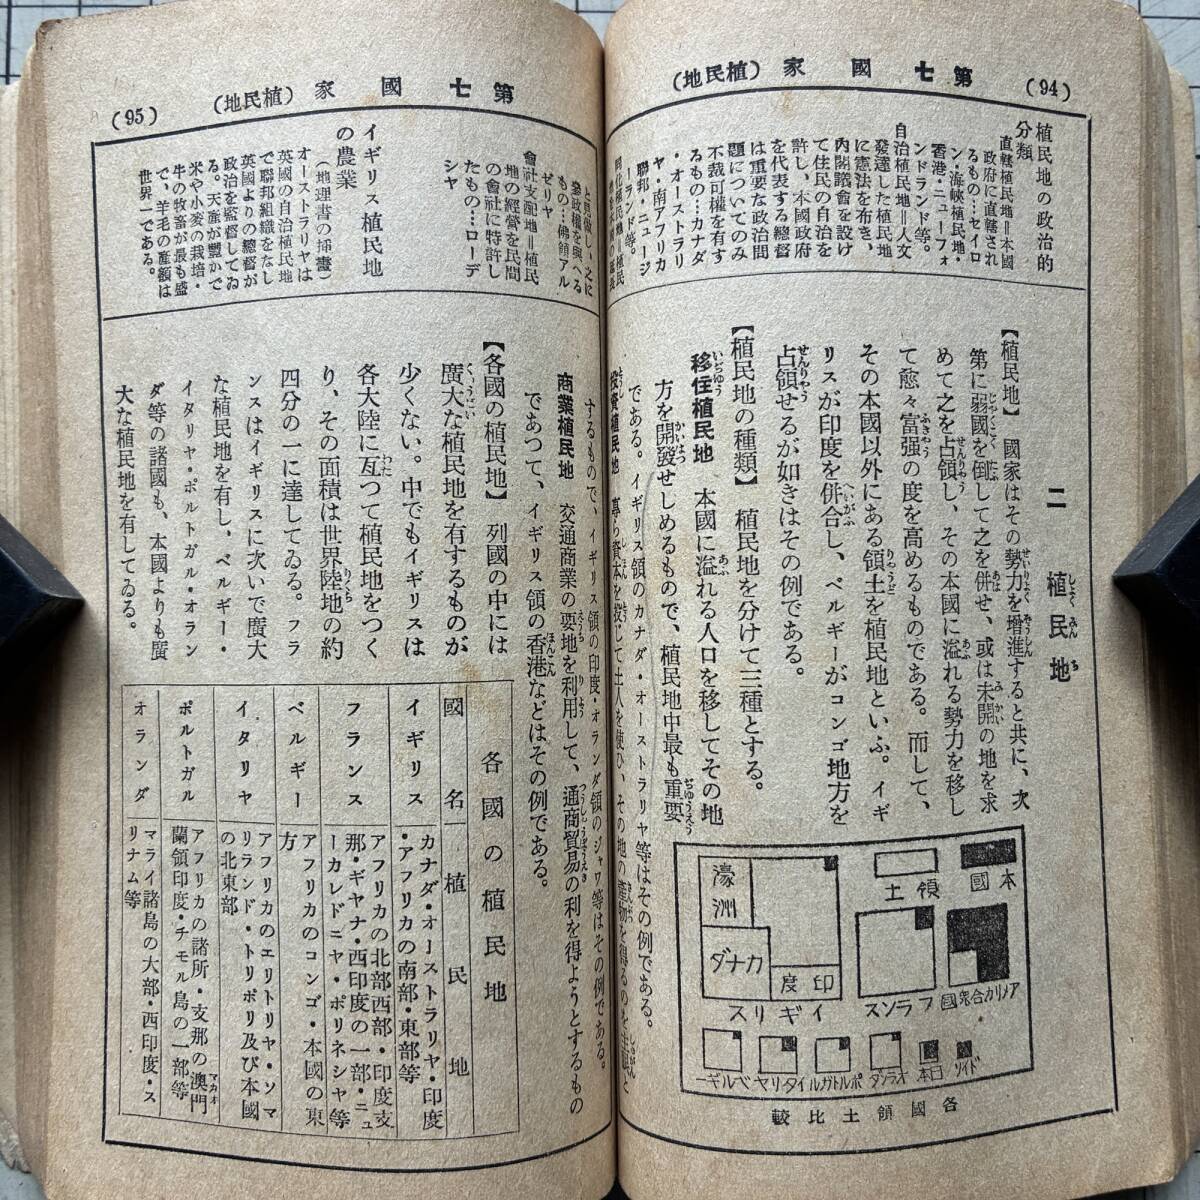 (94) 第七 國家 (植民地)
植民地の政治的
分類
直轄植民地＝本國
政府に直轄され
るもの…セイロ
ン・海峽植民地・
香港・ニューフォ
ンドランド等。
自治植民地＝人文
發達した植民地
に憲法を布き、
內閣議會を設け
て住民の自治を
許し、本國政府
を代表する總督
は重要な政治問
題についてのみ
不裁可權を有す
るもの…カナダ
・オーストラリ
ヤ・南アフリカ
聯邦・ニュージ
ーランド等。
二 植民地
【植民地】 國家はその勢力を增進すると共に、次
第に弱國を倒して之を併せ、或は未開の地を求
めて之を占領し、その本國に溢れる勢力を移し
て愈々富强の度を高めるものである。而して、
その本國以外にある領土を植民地といふ。イギ
リスが印度を併合し、ベルギーがコンゴ地方を
占領せるが如きはその例である。
【植民地の種類】 植民地を分けて三種とする。
移住植民地 本國に溢れる人口を移してその地
方を開發せしめるもので、植民地中最も重要
である。イギリス領のカナダ・オーストラリヤ等はその例である。
投資植民地 專ら資本を投じて土人を使ひ、その地の產物を得るのを主眼と
本國
領土
アメリカ合衆國
フランス
イギリス
濠洲
カナダ
印度
ドイツ
日本
オランダ
ポルトガル
イタリヤ
ベルギー
各國領土比較
(95) 第七 國家 (植民地)
と同視し、之に
參政權を與へる
もの…佛領アル
ゼリヤ
會社支配地＝植民
地の經營を民間
の會社に特許し
たもの…ローデ
シヤ
イギリス植民地
の農業
(地理書の插畫)
オーストラリヤは
英國の自治植民地
で聯邦組織をなし
英國よりの總督が
政治を監督してゐ
る。天產が豐かで
米や小麥の栽培・
牛の牧畜が最も盛
で、羊毛の產額は
世界一である。
するもので、イギリス領の印度・オランダ領のジャワ等はその例である。
商業植民地 交通商業の要地を利用して、通商貿易の利を得ようとするもの
であつて、イギリス領の香港などはその例である。
【各國の植民地】 列國の中には
廣大な植民地を有するものが
少くない。中でもイギリスは
各大陸に亙つて植民地をつく
り、その面積は世界陸地の約
四分の一に達してゐる。フラ
ンスはイギリスに次いで廣大
な植民地を有し、ベルギー・
イタリヤ・ポルトガル・オラン
ダ等の諸國も、本國よりも廣
大な植民地を有してゐる。
各國の植民地
國名 植民地
イギリス カナダ・オーストラリヤ・印度
・アフリカの南部・東部等
フランス アフリカの北部西部・印度支
那・ギヤナ・西印度の一部・ニュ
ーカレドニヤ・ポリネシヤ等
ベルギー アフリカのコンゴ・本國の東
方
イタリヤ アフリカのエリトリヤ・ソマ
リランド・トリポリ及び本國
の北東部
ポルトガル アフリカの諸所・支那の澳門
蘭領印度・チモル島の一部等
オランダ マライ諸島の大部・西印度・ス
リナム等